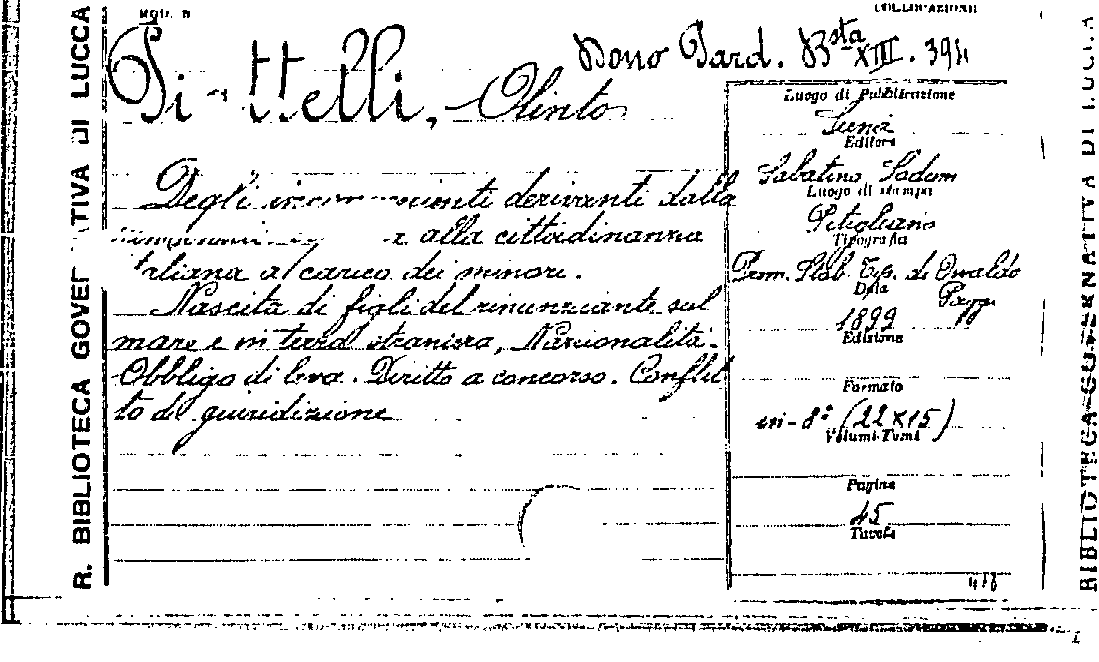 MOD. B
COLLOCAZIONE
R. BIBLIOTECA GOVER TIVA DI LUCCA
Dono Pard. Bsta XIII. 394
ttelli, Olinto
Degli derivanti dalla
alla cittadinanza
taliana a carico dei minori.
Nascita di figli del rinunziante sul
mare e in terra straniera, Nazionalità.
Obbligo di leva. Diritto a concorso. Conflit
to di giurisdizione
Luogo di Pubblicazione
Editore
Sabatino
Luogo di stampa
Pitigliano
Tipografia
Prem. Stab. Tip. di Osvaldo
Paggi
Data
1899
Edizione
Formato
in-8° (22x15)
Volumi-Tomi
Pagine
45
Tavole
BIBLIOTECA GOVERNATIVA DI LUCCA